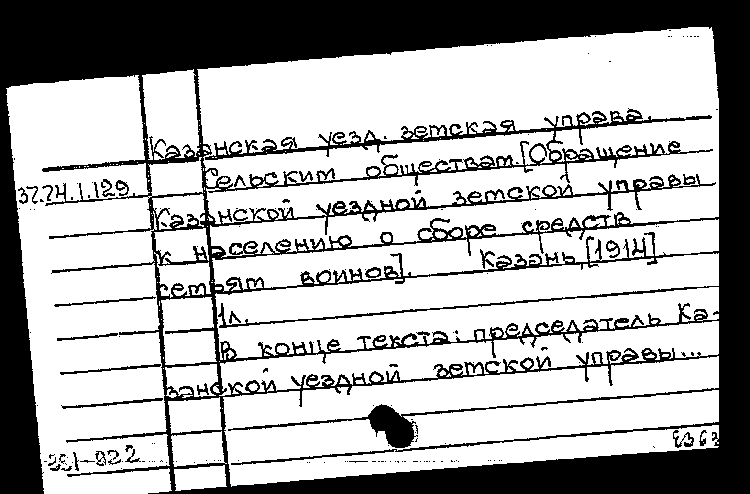 Казанская уезд. земская управа.
Сельским обществам.[Обращение
37.24.1.129.
Казанской уездной земской управы
к населению о сборе средств
семьям воинов]. Казань,[1914].
1л.
В конце текста: председатель Ка-
занской уездной земской управы...